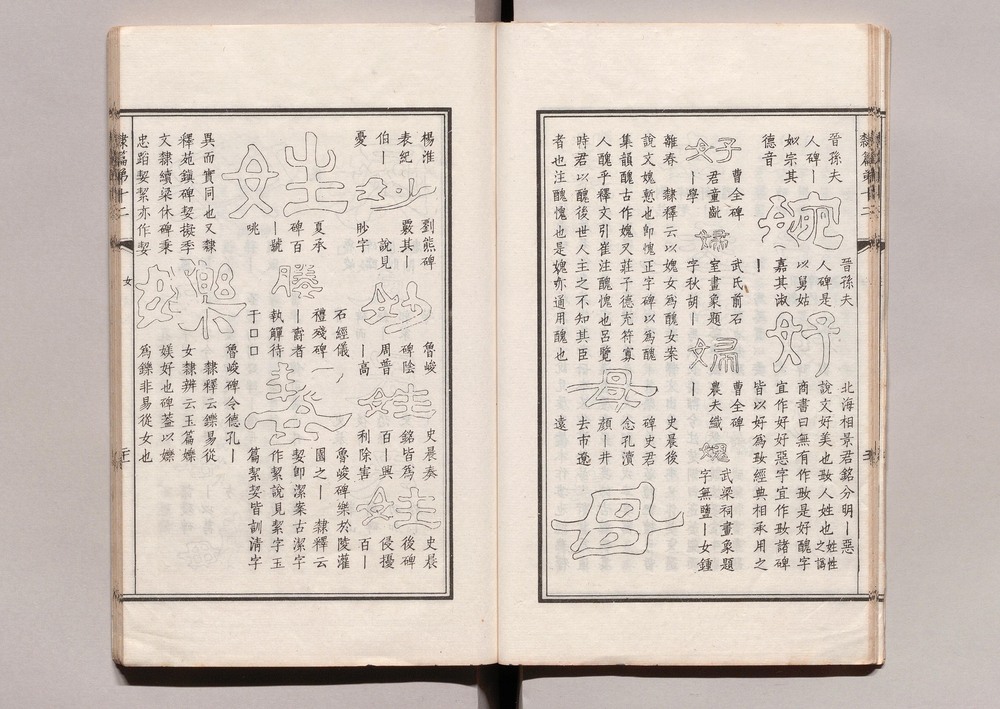 隸篇第十二
晉孫夫
人碑丨
姒宗其
德音
婉
晉孫夫
人碑是
以舅姑
嘉其淑
丨
好
北海相景君銘分明丨惡
說文好美也㚥人姓也之譌姓姓
商書曰無有作㚥是好醜字
宜作好好惡字宜作㚥諸碑
皆以好爲㚥經典相承用之
好
曹全碑
君童齔
丨學
婦
武氏前石
室畫象題
字秋胡丨
婦
曹全碑
農夫織
丨
媿
武梁祠畫象題
字無鹽丨女鍾
離春 隸釋云以媿女爲醜女案
說文媿慙也卽愧正字碑以爲醜
集韻醜古作媿又莊子德充符寡
人醜乎釋文引崔注醜愧也呂覽
時君以醜後世人主之不知其臣
者也注醜愧也是媿亦通用醜也
母
史晨後
碑史君
念孔瀆
顏丨井
去市遼
遠
母
楊淮
表紀
伯丨
憂
妙
劉熊碑
覈其丨
說見
眇字
妙
魯峻
碑陰
周普
丨高
姓
史晨奏
銘皆爲
百丨興
利除害
姓
史晨
後碑
侵擾
百丨
姓
夏承
碑百
丨號
咷
媵
石經儀
禮殘碑
丨爵者
執觶待
于囗囗
魯峻碑樂於陵灌
園之丨 隸釋云
契卽潔案古潔字
作絜說見絜字玉
篇絜契皆訓清字
異而實同也又隸
釋苑鎮碑契擬季
文隸續梁休碑秉
忠蹈契絜亦作契
魯峻碑令德孔丨
隸釋云鑠易從
女隸辨云玉篇㜰
媄好也碑蓋以㜰
爲鑠非易從女也
隸篇第十二
女